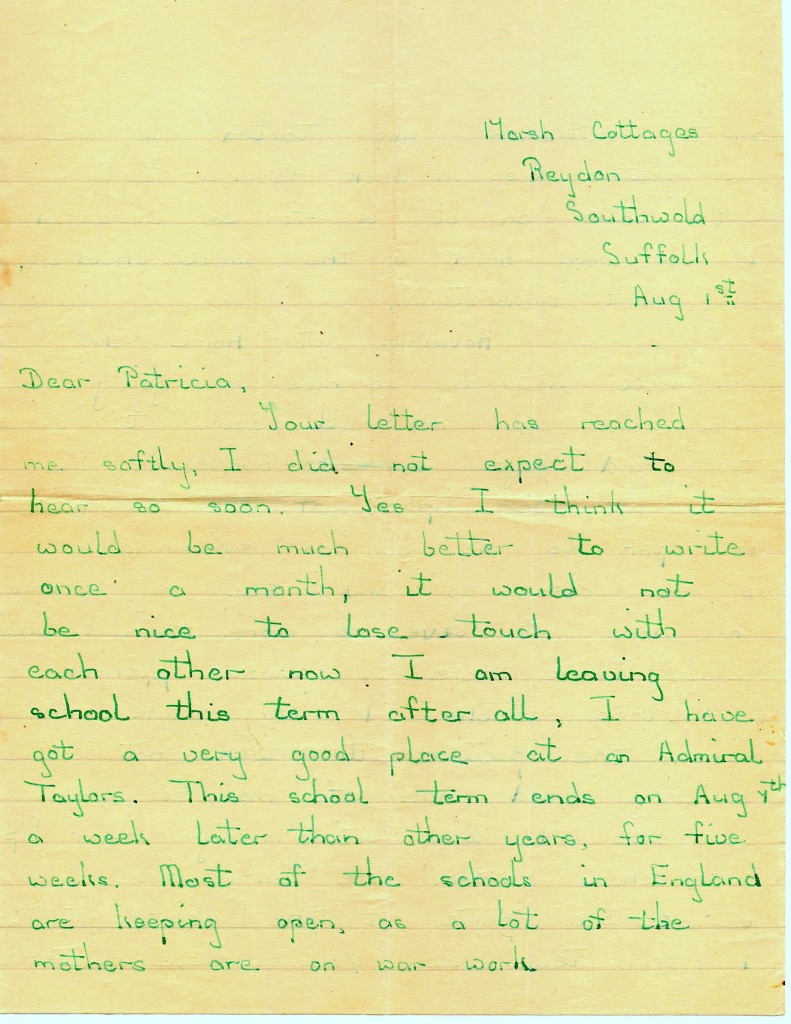 Marsh Cottages
Reydon
Southwold
Suffolk
Aug 1st
Dear Patricia,
Your letter has reached
me saftly, I did not expect to
hear so soon. Yes I think it
would be much better to write
once a month, it would not
be nice to lose touch with
each other now. I am leaving
school this term after all, I have
got a very good place at an Admiral
Taylors. This school term ends on Aug
a week later than other years, for five
weeks. Most of the schools in England
are keeping open, as a lot of the
mothers are on war work